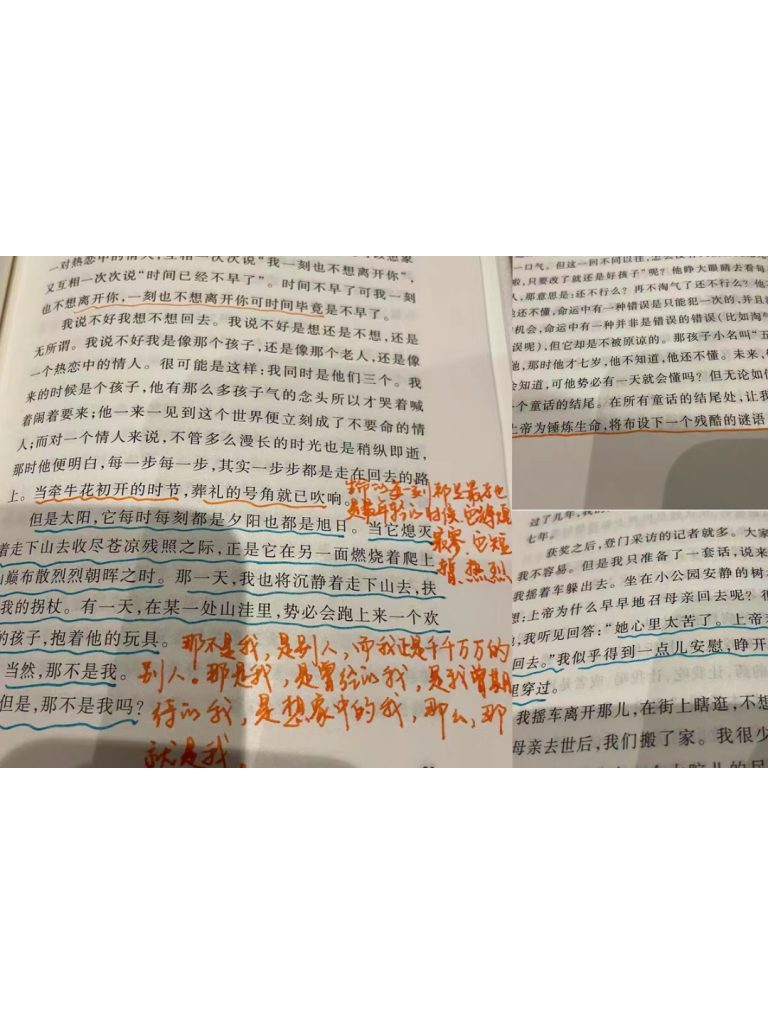 一对热恋中的情人,互相一次次说“我一刻也不想离开你”,
又互相一次次说“时间已经不早了”。时间不早了可我一刻
也不想离开你,一刻也不想离开你可时间毕竟是不早了。
我说不好我想不想回去。我说不好是想还是不想,还是
无所谓。我说不好我是像那个孩子,还是像那个老人,还是像
一个热恋中的情人。很可能是这样:我同时是他们三个。我
来的时候是个孩子,他有那么多孩子气的念头所以才哭着喊
着闹着要来;他一来一见到这个世界便立刻成了不要命的情
人;而对一个情人来说,不管多么漫长的时光也是稍纵即逝,
那时他便明白,每一步每一步,其实一步步都是走在回去的路
上。当牵牛花初开的时节,葬礼的号角就已吹响。
但是太阳,它每时每刻都是夕阳也都是旭日。当它熄灭
着走下山去收尽苍凉残照之际,正是它在另一面燃烧着爬上
山巅布散烈烈朝晖之时。那一天,我也将沉静着走下山去,扶
我的拐杖。有一天,在某一处山洼里,势必会跑上来一个欢
的孩子,抱着他的玩具。
当然,那不是我。
但是,那不是我吗?
那一刻
最老也
是最年轻的时候,它
最寒,它短
暂、热烈
那不是我,是别人,而我正是千千万万的
别人。那是我,是曾经的我,是我曾期
待的我,是想象中的我,那么,那
就是我。
一口气。但这一回不同以往,怎么没有
啦,只要改了就还是好孩子”呢?他睁大眼睛去看每
人,那意思是:还不行么?再不淘气了还不行么?他
还不懂,命运中有一种错误是只能犯一次的,并且
机会,命运中有一种并非是错误的错误(比如淘气
误呢),但它却是不被原谅的。那孩子小名叫“五
他,那时他才七岁,他不知道,他还不懂。未来,他
会知道,可他势必有一天就会懂吗?但无论如
个童话的结尾。在所有童话的结尾处,让我
上帝为锤炼生命,将布设下一个残酷的谜语
过了几年,我的
七年。
获奖之后,登门采访的记者就多。大家
我不容易。但是我只准备了一套话,说来
我摇着车躲出去。坐在小公园安静的树
想:上帝为什么早早地召母亲回去呢?很
,我听见回答:“她心里太苦了。上帝
回去。”我似乎得到一点儿安慰,睁开
里穿过。
我摇车离开那儿,在街上瞎逛,不想
母亲去世后,我们搬了家。我很少